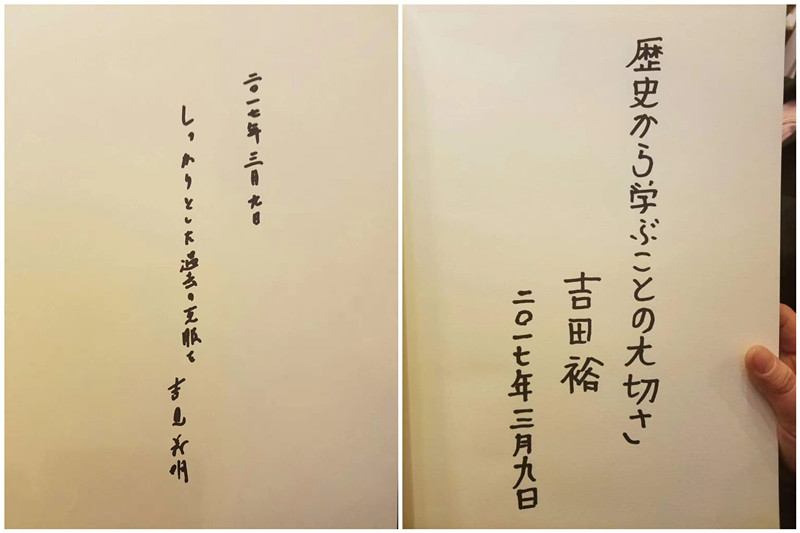 二〇一七年 三月 九日
しっかりとした過去の克服を
吉見義明
歴史から学ぶことの大切さ
吉田 裕
二〇一七年 三月九日